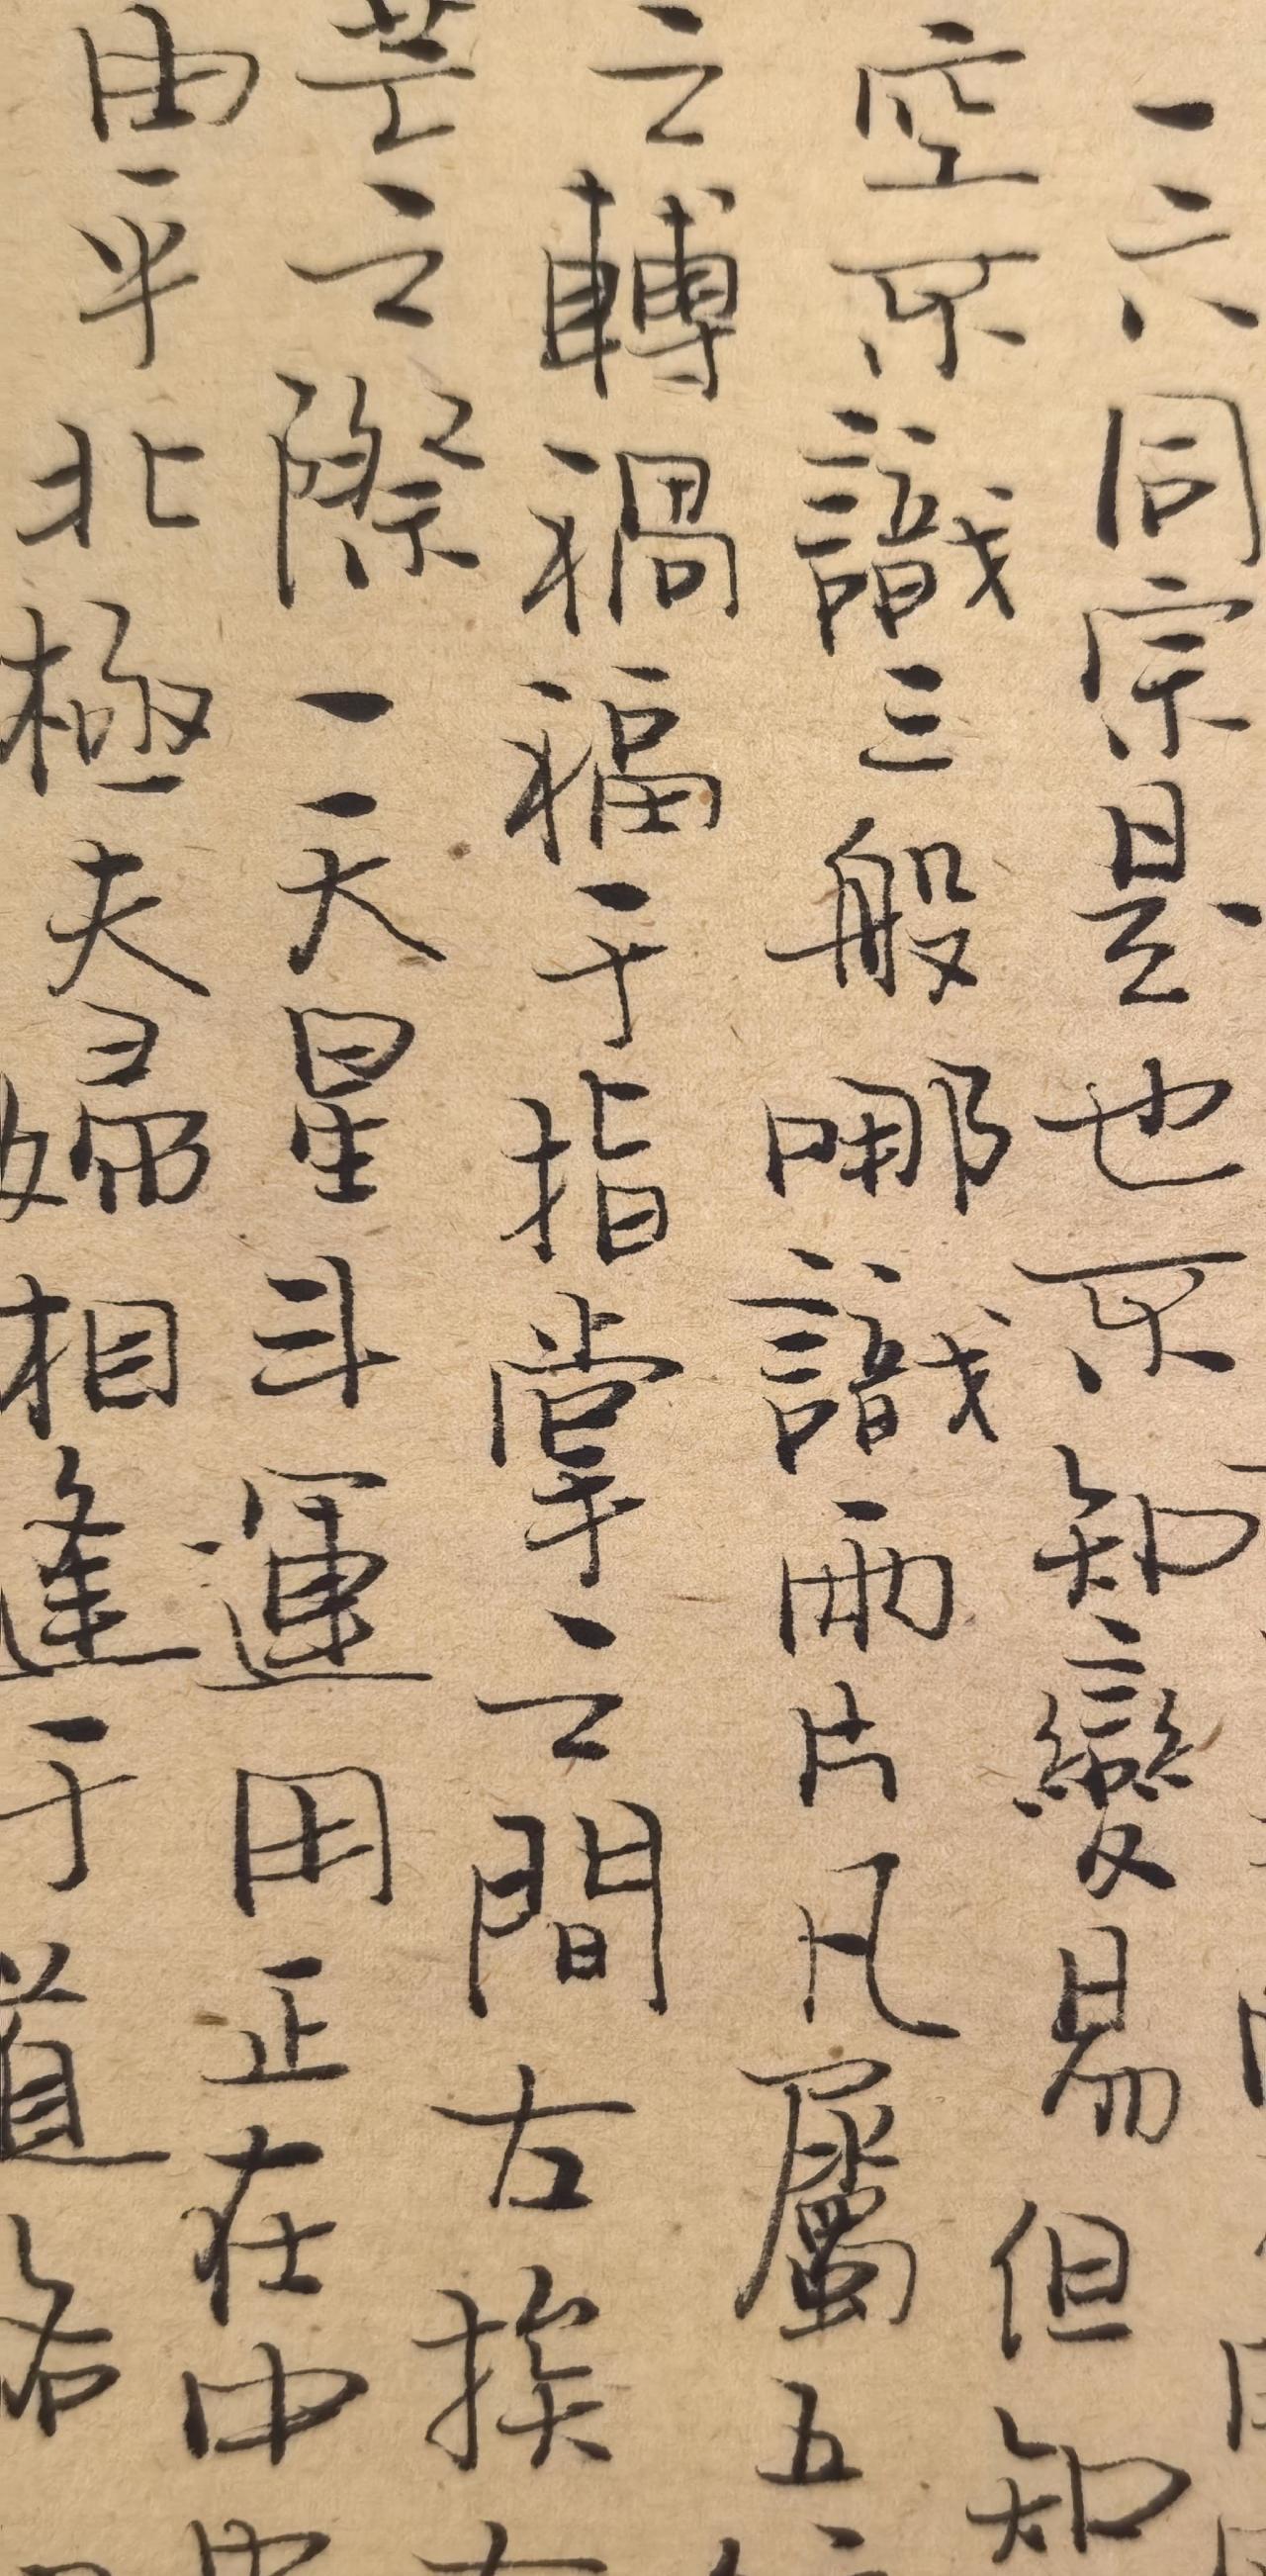 一六同宗是也不知變易但知
空不識三般哪識兩片凡屬五
之轉禍福于指掌之間左挨
芒之際一天星斗運用正在中
由乎北極夫婦相逢于道路